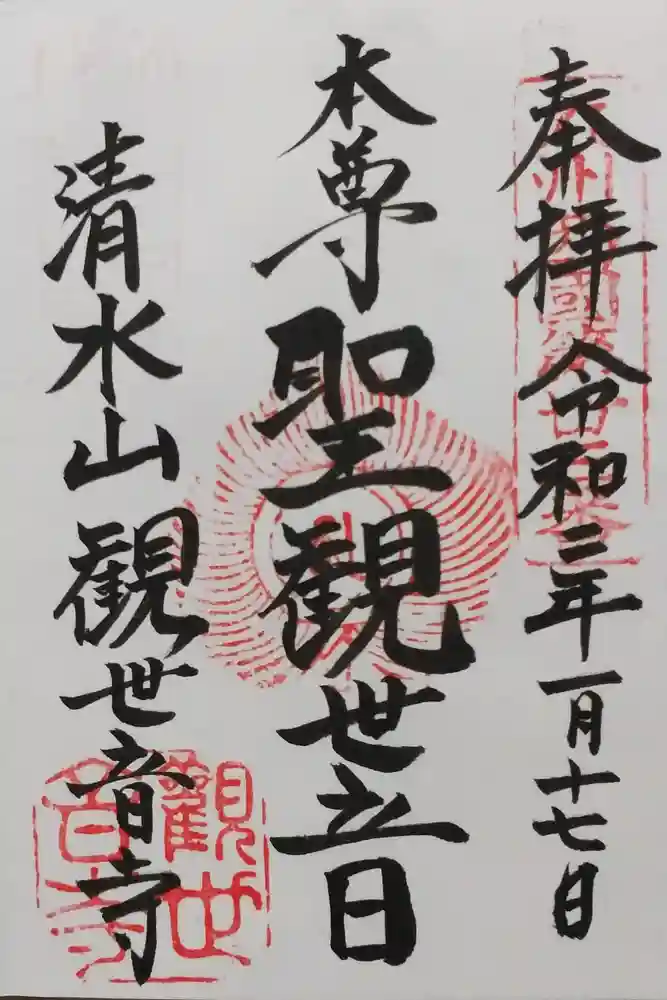 奉拝 令和三年一月十七日
本尊 聖観世音
清水山観世音寺
觀世音寺